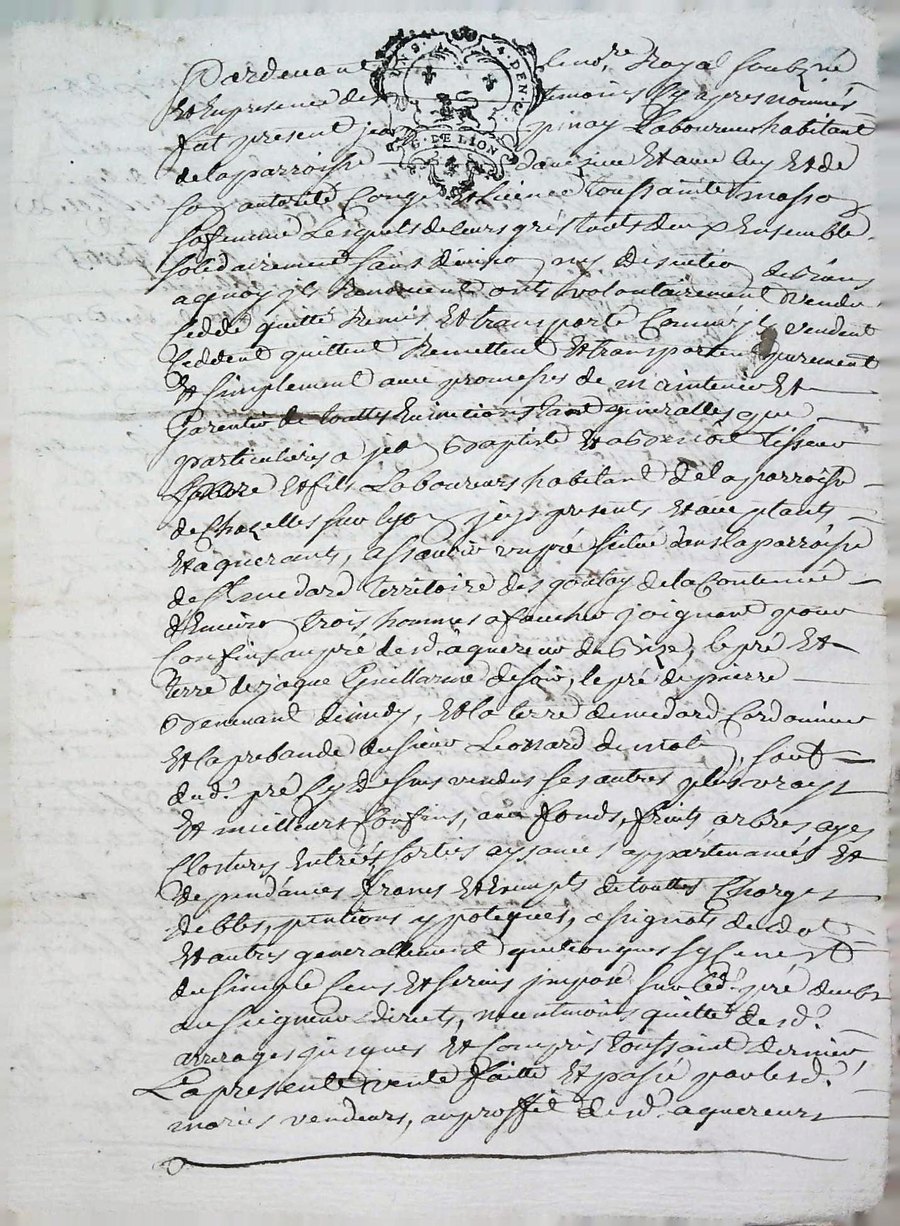 Pardevant le no.re Royal soubz.né
Et En presence des temoins Cy apres nommés
fut present jea pinay Laboureur habitant
de la parroisse d'aveizieu Et avec luy Et de
son autorité Conge Et licence toussainte masso
sa femme Lesquels de leurs grés touts deux Ensemble
solidairement sans division ny discution de biens
a quoy ils Renoncent ont volontairement vendu
Ceddé quitté Remis Et transporté Comme ils vendent
Ceddent quittent Remettent Et transportent purement
Et simplement avec promesses de maintenir Et
Garentir de touttes Evictions tant generalles que
particulieres a jea Baptiste Et a Benoit tisseur
pere Et fils Laboureurs habitant de la parroisse
de Chazelles sur lyo jcy presents Et acceptants
Et aquerants, a sçavoir un pré situé dans la parroisse
de St medard territoire des goutay de la Contenue
d'Environ trois hommes a faucher joignant pour
Confins au pré desd. aquereur de Bize, le pré Et
terre de jaque Guillarme de soir, le pré de pierre
venant de midy, Et la terre de medard Cordonnier
Et la prebande du sieur Leonard de matin, sauf
dud. pré Cy dessus vendus ses autres plus vrays
Et meilleurs Confins, avec fonds, fruits arbres, ayes
Clostures Entrées sorties aysances appartenances Et
dependances francs Et Exempts de touttes Charges
debtes, pentions ypoteques, assignats de dot
Et autres generallement quelconques sy Ce n'est
du simple Cens Et servis jmposé sur led. pré deub
au seigneur direct, neantmoins quitte desd.
arrerages jusques Et Compris toussaint dernier
La presente vente faitte Et passé par lesd.
mariés vendeurs, au proffit desd. aquereurs
G. DE LION